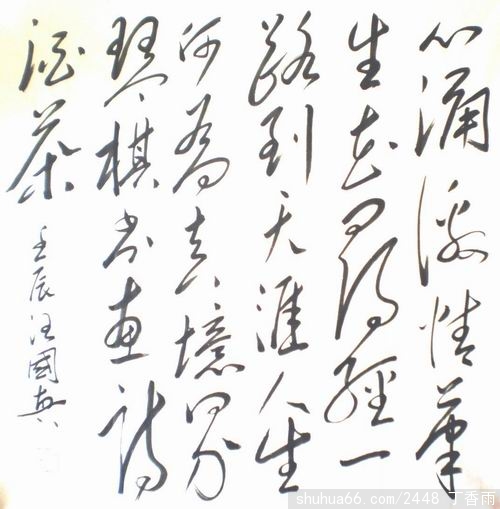 心涌激情笔
生花得经一
路到天涯人生
何為真境界
琴棋书画诗
酒茶
壬辰汪國興
shuhua66.com/2448 丁香雨